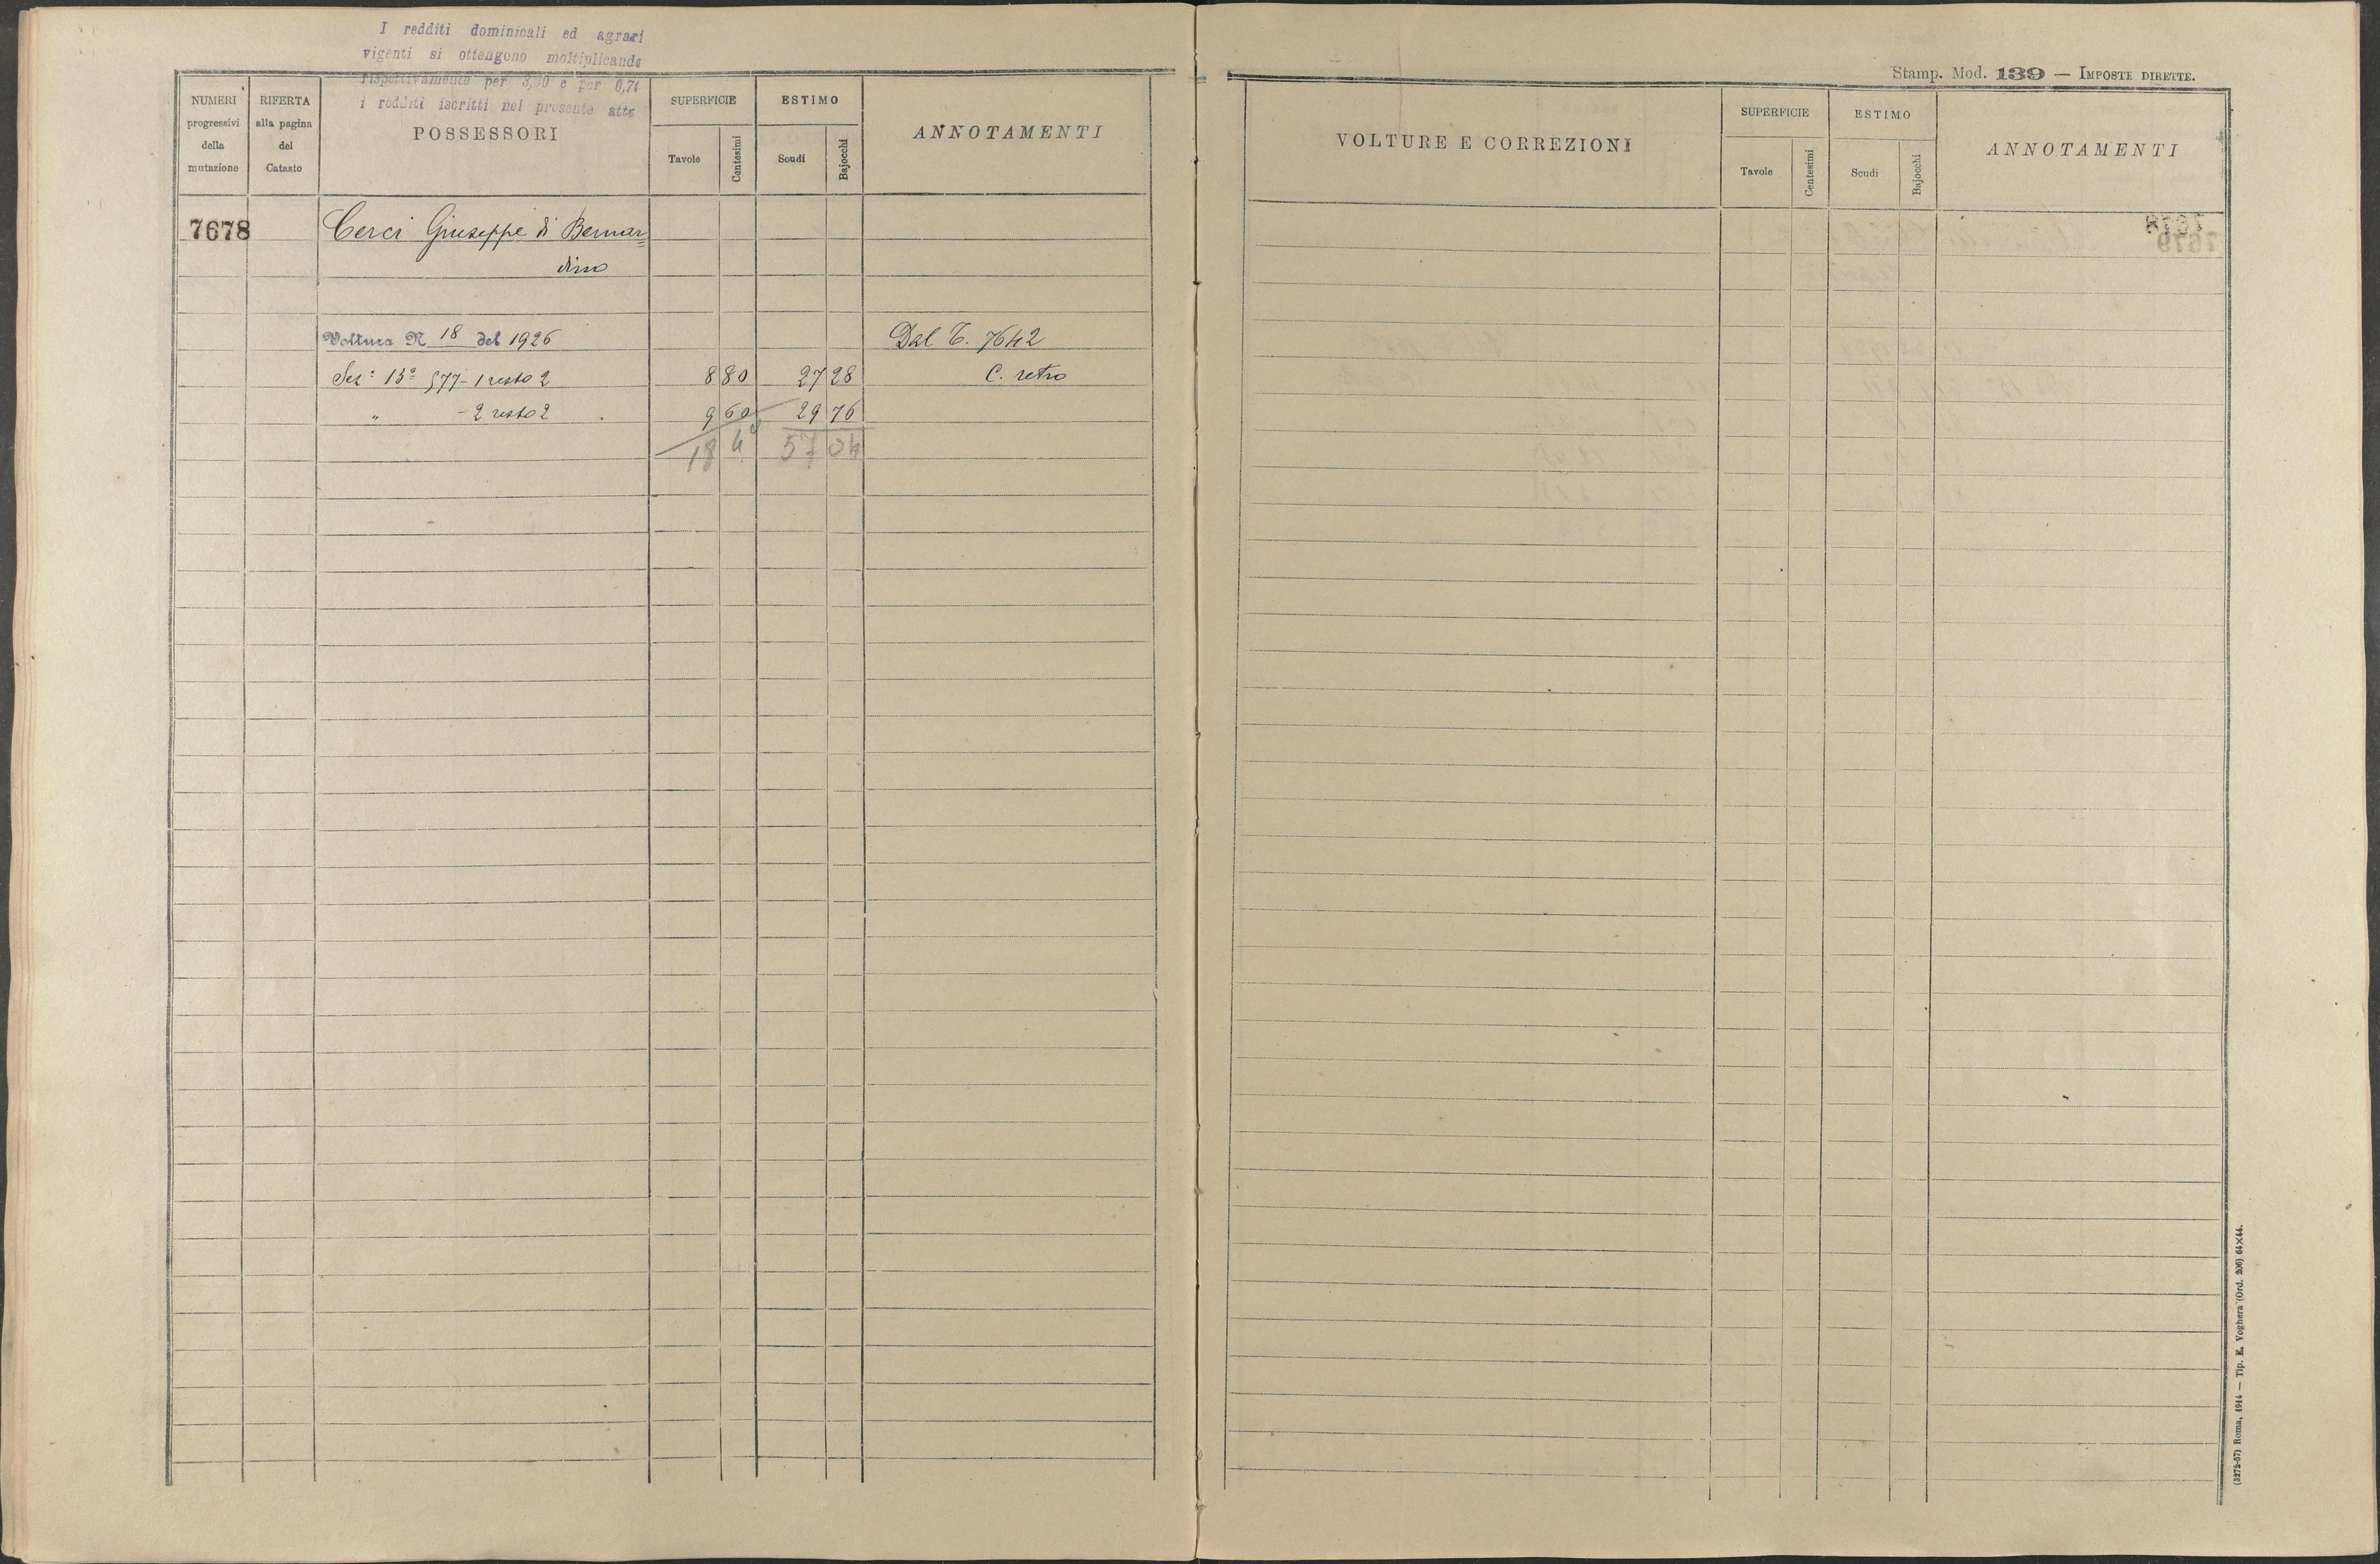 I redditi dominicali ed agrari
vigenti si ottengono moltiplicando
rispettivamente per 3,90 e per 0,74
i redditi iscritti nel presente atto
NUMERI
progressivi
della
mutazione
RIFERTA
alla pagina
del
Catasto
POSSESSORI
SUPERFICIE
Tavole
Centesimi
ESTIMO
Scudi
Bajocchi
ANNOTAMENTI
7678 Cerci Giuseppe di Bernar=
dino
Voltura N 18 del 1926 Dal T. 7642
Sez: 13ª 577-1 resto 2 8 80 27 28 C. retro
" -2 resto 2 9 60 29 76
18 4 57 04
Stamp. Mod. 139 — IMPOSTE DIRETTE.
VOLTURE E CORREZIONI
SUPERFICIE
Tavole
Centesimi
ESTIMO
Scudi
Bajocchi
ANNOTAMENTI
7678
7679
(3272-57) Roma, 1914 — Tip. E. Voghera (Ord. 206) 64×44.